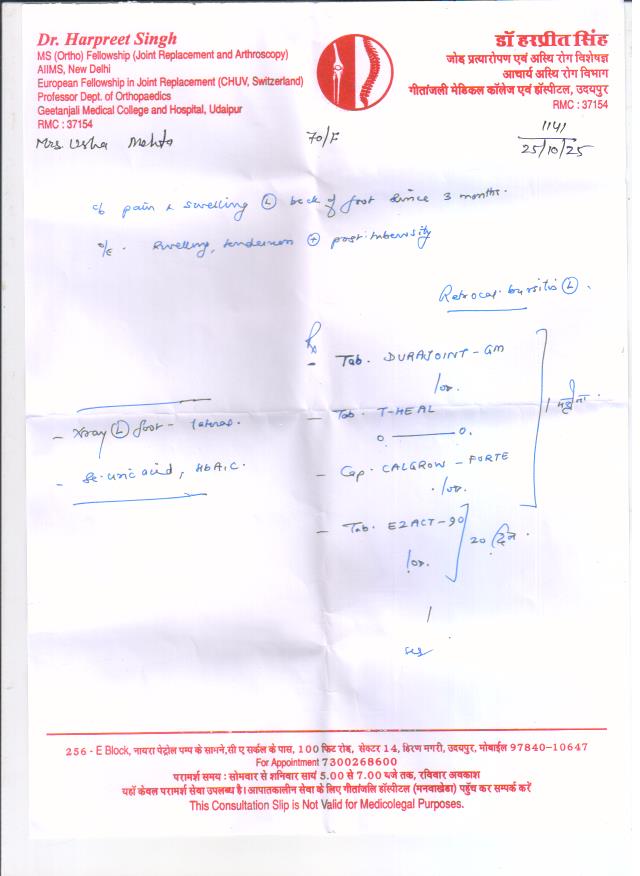 Dr. Harpreet Singh
MS (Ortho) Fellowship (Joint Replacement and Arthroscopy)
AIIMS, New Delhi
European Fellowship in Joint Replacement (CHUV, Switzerland)
Professor Dept. of Orthopaedics
Geetanjali Medical College and Hospital, Udaipur
RMC : 37154
डॉ हरप्रीत सिंह
जोड़ प्रत्यारोपण एवं अस्थि रोग विशेषज्ञ
आचार्य अस्थि रोग विभाग
गीतांजली मेडिकल कॉलेज एवं हॉस्पीटल, उदयपुर
RMC : 37154
Mrs. Usha Mehta 70/F 1141
25/10/25
c/o pain & swelling (L) back of foot since 3 months.
o/e. Swelling, tenderness (+) post. tuberosity
Retrocal. bursitis (L).
Rx
- Tab. DURAJOINT-GM
1 od.
- Tab. T-HEAL
0 — 0.
- Cap. CALGROW-FORTE
1 od.
1 महीना.
- Xray (L) foot - lateral.
- Se. uric acid, HbA1C.
- Tab. EZACT-90
1 od.
20 दिन.
256 - E Block, नायरा पेट्रोल पम्प के सामने, सी ए सर्कल के पास, 100 फिट रोड, सेक्टर 14, हिरण मगरी, उदयपुर, मोबाईल 97840-10647
For Appointment 7300268600
परामर्श समय : सोमवार से शनिवार सायं 5.00 से 7.00 बजे तक, रविवार अवकाश
यहाँ केवल परामर्श सेवा उपलब्ध है। आपातकालीन सेवा के लिए गीतांजलि हॉस्पीटल (मनवाखेडा) पहुँच कर सम्पर्क करें
This Consultation Slip is Not Valid for Medicolegal Purposes.